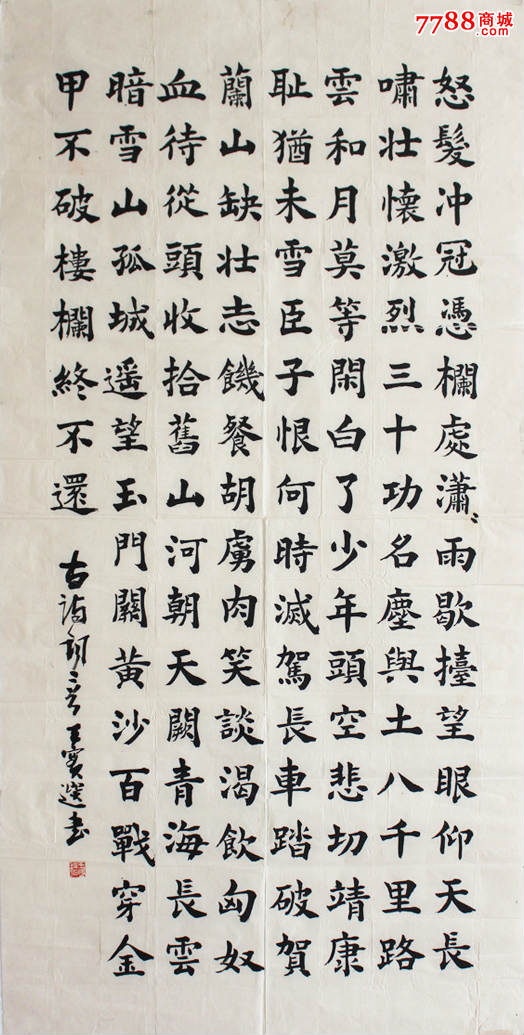 7788商城
怒髮冲冠憑欄處瀟〻雨歇擡望眼仰天長
嘯壯懷激烈三十功名塵與土八千里路
雲和月莫等閑白了少年頭空悲切靖康
耻猶未雪臣子恨何時滅駕長車踏破賀
蘭山缺壯志饑餐胡虜肉笑談渴飲匈奴
血待從頭收拾舊山河朝天闕青海長雲
暗雪山孤城遥望玉門關黄沙百戰穿金
甲不破樓欄終不還 古詩詞二首 王書